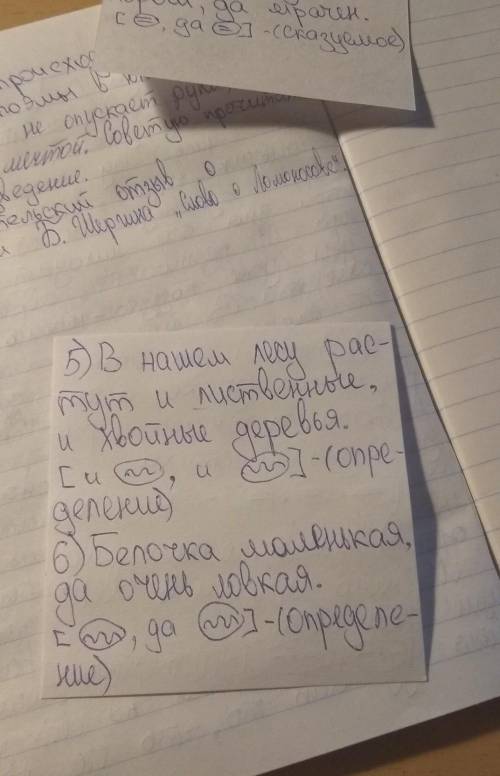 да мрачен.
[ , да ] - (сказуемое)
не опускает руки
мечтой. Советую прочитать
ведение.
отзыв о
Б. Шергина "Слово о Ломоносове".
5) В нашем лесу рас-
тут и лиственные,
и хвойные деревья.
[и , и ] - (опре-
деление)
6) Белочка маленькая,
да очень ловкая.
[ , да ] - (определе-
ние)